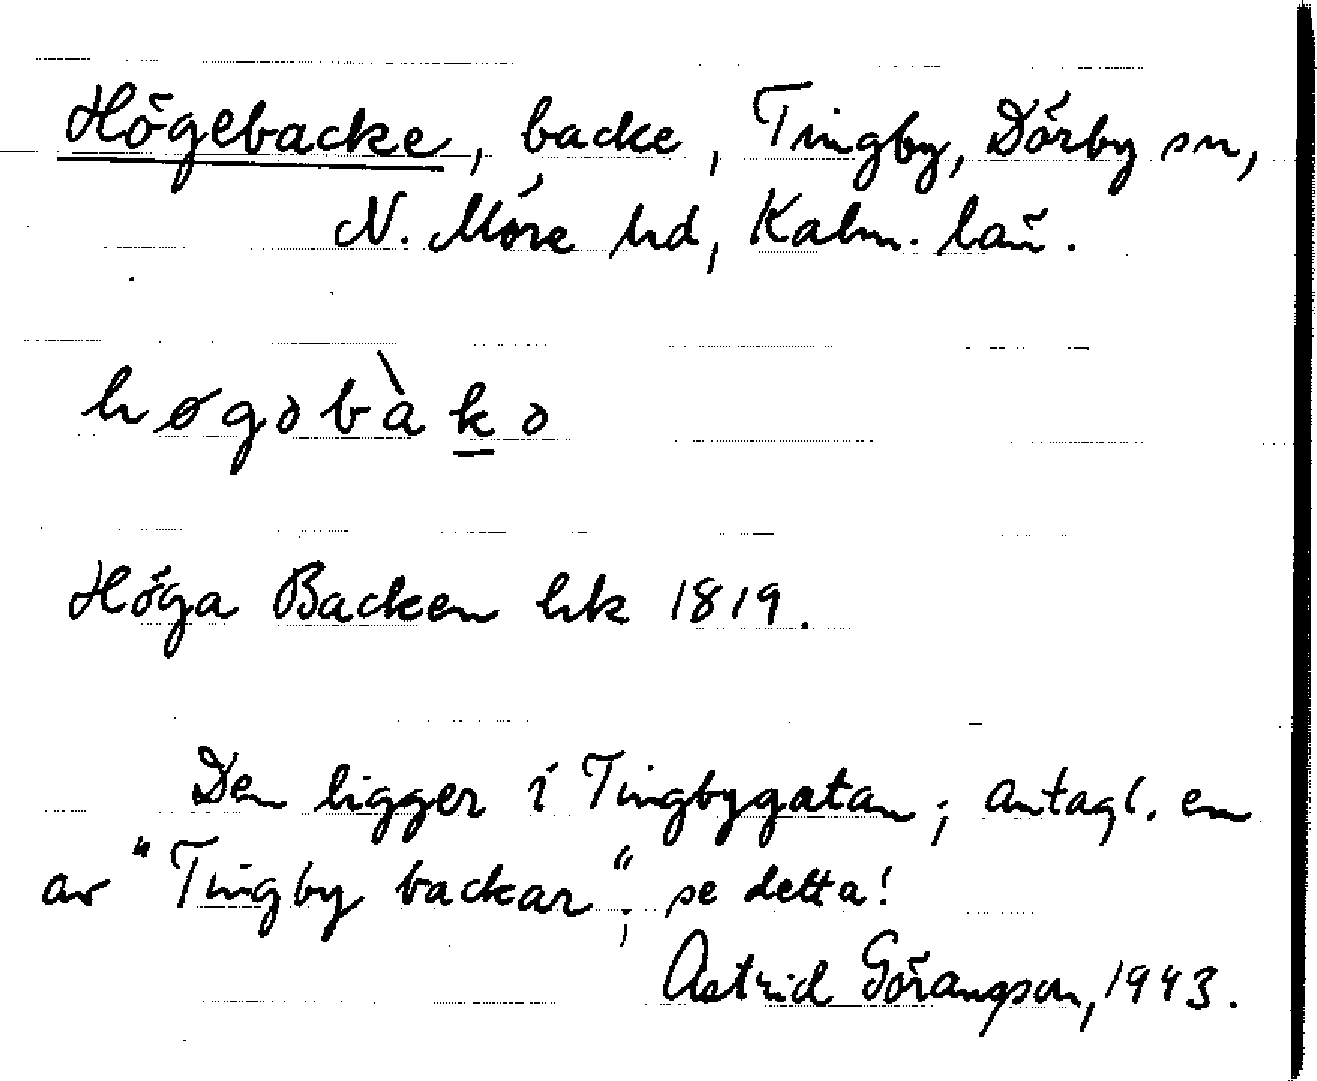 Högebacke, backe, Tingby, Dörby sn,
N. Möre hd, Kalm. län.
høgəbàkə
Höga Backen hk 1819.
Den ligger i Tingbygatan; antagl. en
av "Tingby backar"; se detta!
Astrid Göransson, 1943.